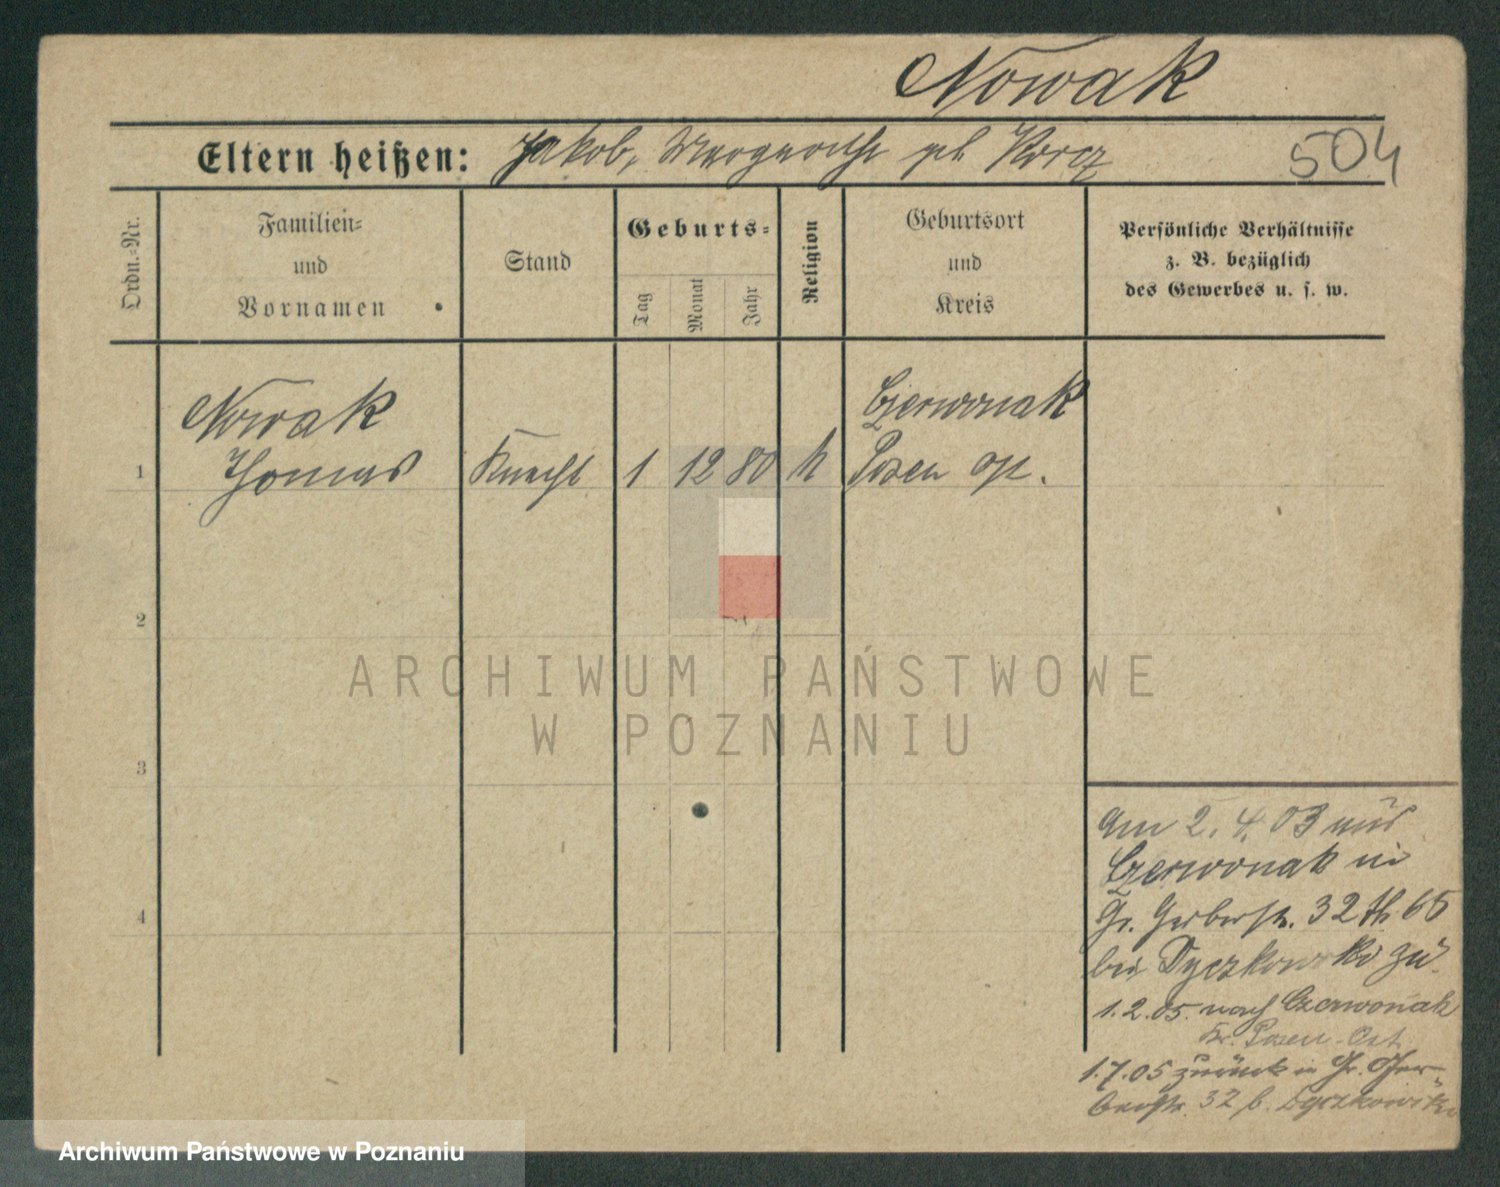 Nowak
Eltern heißen: Jakob, Margarethe geb. Korcz
504
Ordn.=Nr.
Familien=
und
Vornamen
Stand
Geburts=
Tag
Monat
Jahr
Religion
Geburtsort
und
Kreis
Persönliche Verhältnisse
z. B. bezüglich
des Gewerbes u. s. w.
1
Nowak
Thomas
Knecht
1
12
80
k
Czerwonak
Posen
2
3
4
am 2.4.03 aus
Czerwonak in
Gr. Gerberstr. 32 65
bei Dyczkowski zu.
1.2.05. nach Czerwonak
Kr. Posen-Ost
1.7.05 zurück in Gr. Ger-
berstr. 32 b. Dyczkowski
ARCHIWUM PAŃSTWOWE
W POZNANIU
Archiwum Państwowe w Poznaniu